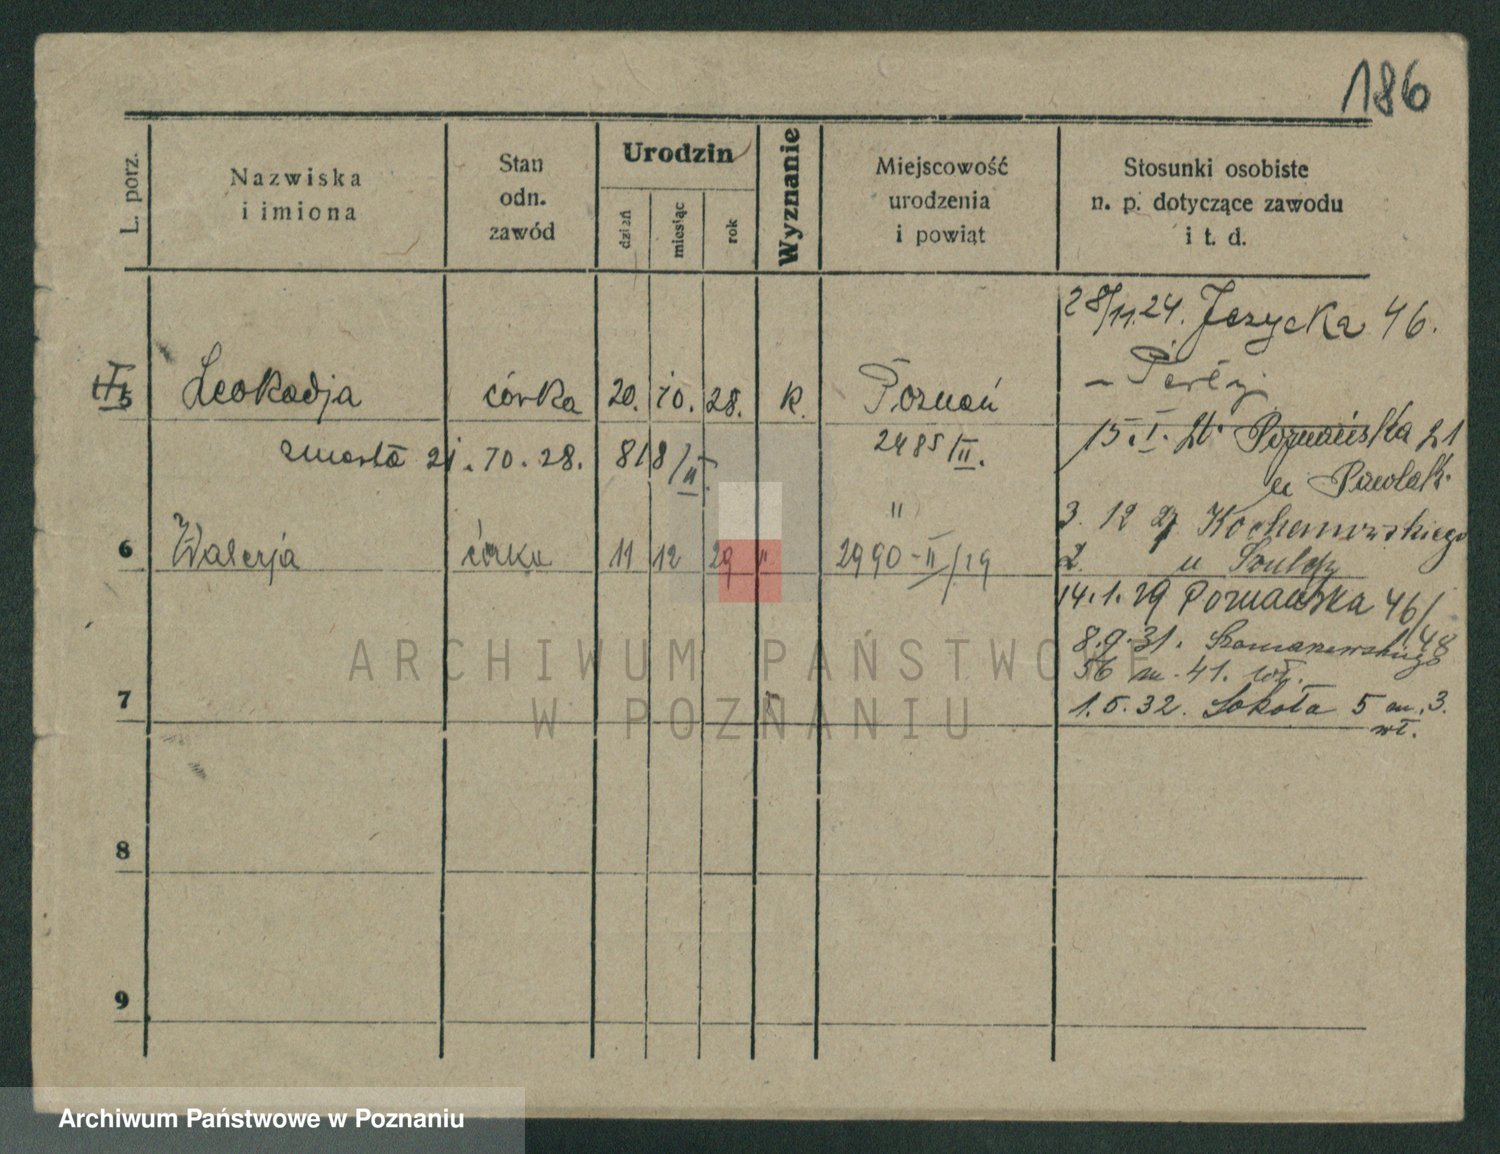 186
L. porz.
Nazwiska
i imiona
Stan
odn.
zawód
Urodzin
dzień
miesiąc
rok
Wyznanie
Miejscowość
urodzenia
i powiąt
Stosunki osobiste
n. p. dotyczące zawodu
i t. d.
28/11.24. Jeżycka 46.
5 Leokadja córka 20. 10. 28. k. Poznań
zmarła 21. 10. 28. 818/II. 2485/II.
15.I. Poznańska 21
u Pawlak.
"
3. 12 27 Kochanowskiego
6 Walerja córka 11 12 29 " 2990-II/29
2. u
14.1.29 Poznańska 46/48
8.9.31. Szamarzewskiego
56 m. 41. wł.
7
1.5.32. Sokoła 5 m. 3.
wł.
8
9
ARCHIWUM PAŃSTWOWE
W POZNANIU
Archiwum Państwowe w Poznaniu